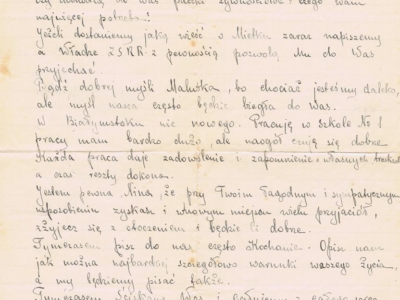 czy dochodzą do Was paczki żywnościowe i czego Wam
najwięcej potrzeba!
Jeżeli dostaniemy jaką wieść o Mietku zaraz napiszemy
a Władze ZSRR z pewnością pozwolą Mu do Was
przyjechać.
Bądź dobrej myśli Maluśka, bo chociaż jesteśmy daleko,
ale myśl nasza często będzie biegła do Was.
W Białymstoku nic nowego. Pracuję w Szkole Nr 1
pracy mam bardzo dużo, ale naogół czuję się dobrze.
Każda praca daje zadowolenie i zapomnienie własnych trosk
a czas reszty dokona.
Jestem pewna Nina, że przy Twoim łagodnym i sympatycznym
usposobieniu zyskasz i w nowym miejscu wielu przyjaciół,
zżyjesz się z otoczeniem i będzie Ci dobrze.
Tymczasem pisz do nas często Kochanie. Opisz nam
jak można najbardziej szczegółowo warunki waszego życia,
a my będziemy pisać także.
Tymczasem Was i